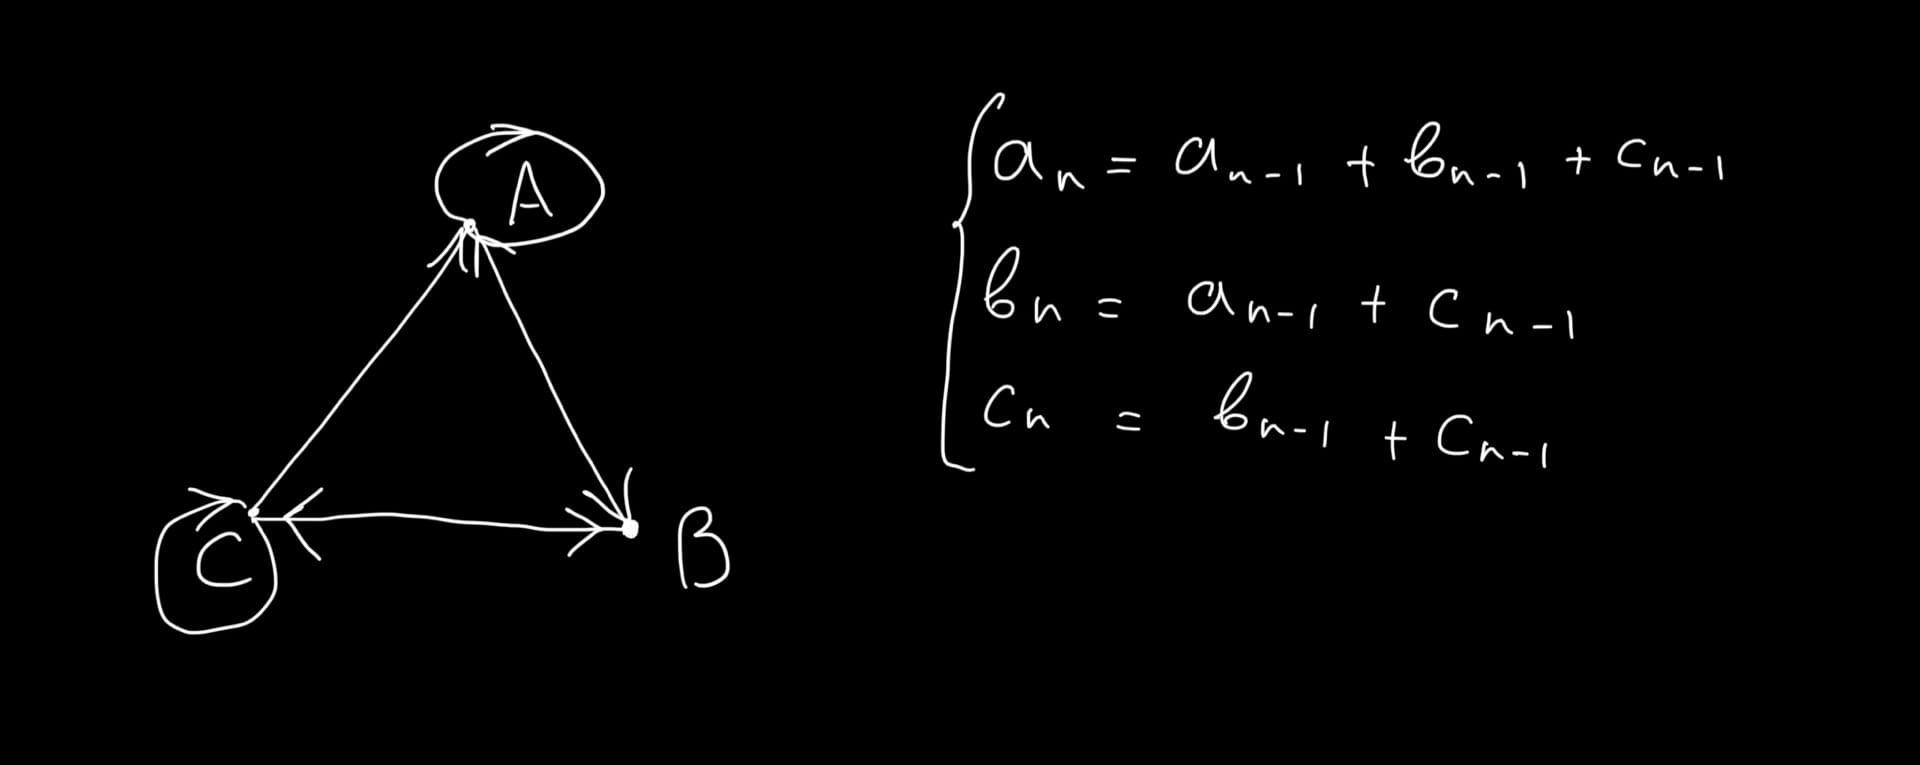 A
C
B
aₙ = aₙ₋₁ + bₙ₋₁ + cₙ₋₁
bₙ = aₙ₋₁ + cₙ₋₁
cₙ = bₙ₋₁ + cₙ₋₁